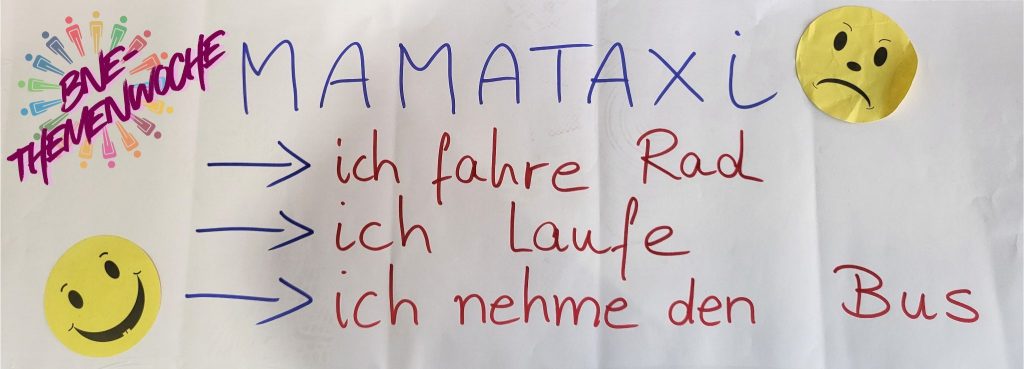 BNE-
THEMENWOCHE
MAMATAXi
→ ich fahre Rad
→ ich Laufe
→ ich nehme den Bus